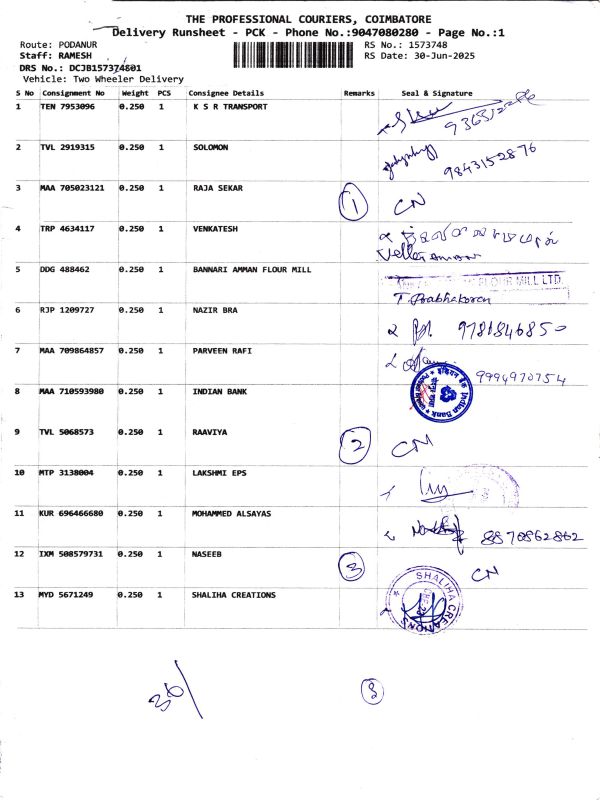 THE PROFESSIONAL COURIERS, COIMBATORE
Delivery Runsheet - PCK - Phone No.:9047080280 - Page No.:1
Route: PODANUR RS No.: 1573748
Staff: RAMESH RS Date: 30-Jun-2025
DRS No.: DCJB157374801
Vehicle: Two Wheeler Delivery
S No Consignment No Weight PCS Consignee Details Remarks Seal & Signature
1 TEN 7953096 0.250 1 K S R TRANSPORT
2 TVL 2919315 0.250 1 SOLOMON 9843152876
3 MAA 705023121 0.250 1 RAJA SEKAR 1 CN
4 TRP 4634117 0.250 1 VENKATESH
5 DDG 488462 0.250 1 BANNARI AMMAN FLOUR MILL FLOUR MILL LTD.
T. Prabhakaran
6 RJP 1209727 0.250 1 NAZIR BRA 9781846850
7 MAA 709864857 0.250 1 PARVEEN RAFI 9994970754
8 MAA 710593980 0.250 1 INDIAN BANK Indian Bank
9 TVL 5068573 0.250 1 RAAVIYA 2 CN
10 MTP 3138004 0.250 1 LAKSHMI EPS
11 KUR 696466680 0.250 1 MOHAMMED ALSAYAS 8870862862
12 IXM 508579731 0.250 1 NASEEB 3 CN
13 MYD 5671249 0.250 1 SHALIHA CREATIONS SHALIHA CREATIONS
36/